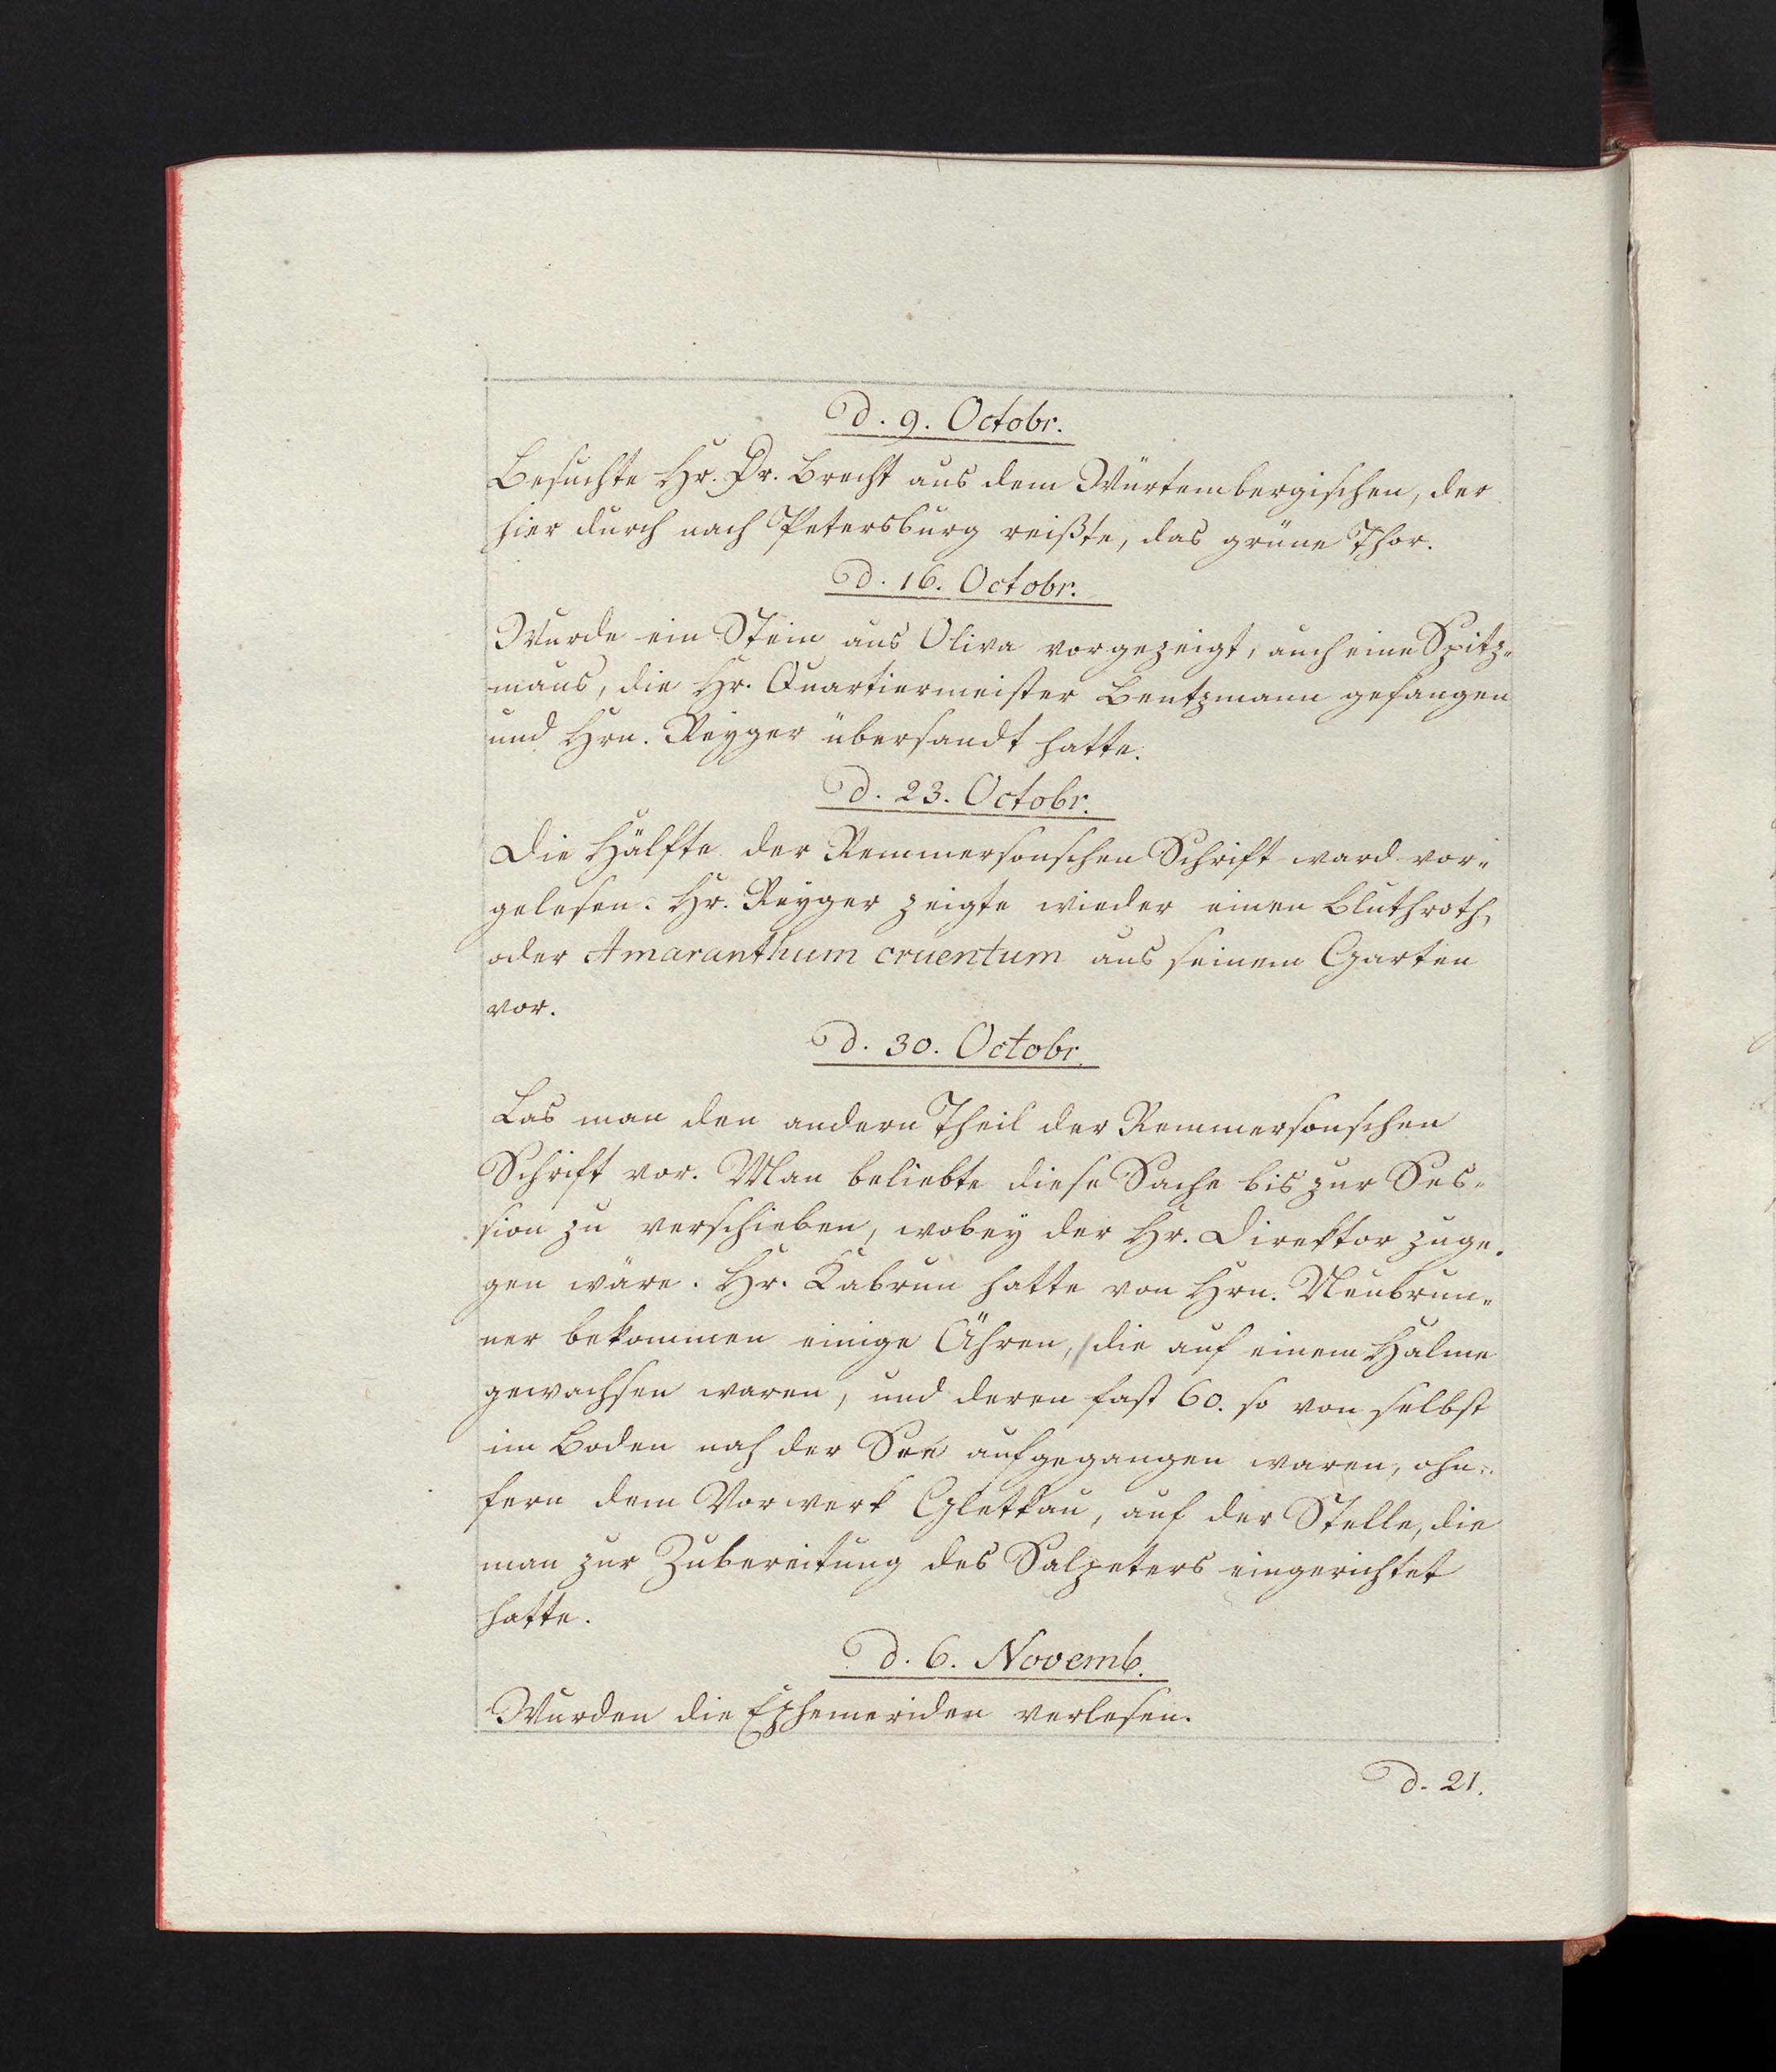 D. 9. Octobr.
Besuchte Hr. Dr. Brecht aus dem Würtembergischen, der
hier durch nach Petersburg reißte, das grüne Thor.
D. 16. Octobr.
Wurde ein Stein aus Oliva vorgezeigt, auch eine Spitz-
maus, die Hr. Quartiermeister Bentzmann gefangen
und Hrn. Reyger übersandt hatte.
D. 23. Octobr.
Die Hälfte der Remmersonschen Schrift ward vor-
gelesen. Hr. Reyger zeigte wieder einen Bluthroth,
oder Amaranthum cruentum aus seinem Garten
vor.
D. 30. Octobr.
Las man den andern Theil der Remmersonschen
Schrift vor. Man beliebte diese Sache bis zur Ses-
sion zu verschieben, wobey der Hr. Direktor zuge-
gen wäre. Hr. Kabrun hatte von Hrn. Neubrun-
ner bekommen einige Ähren, die auf einem Halme
gewachsen waren, und deren fast 60. so von selbst
im Boden nah der See aufgegangen waren, ohn-
fern dem Vorwerk Glettkau, auf der Stelle, die
man zur Zubereitung des Salpeters eingerichtet
hatte.
D. 6. Novemb.
Wurden die Ephemeriden verlesen.
D. 21.